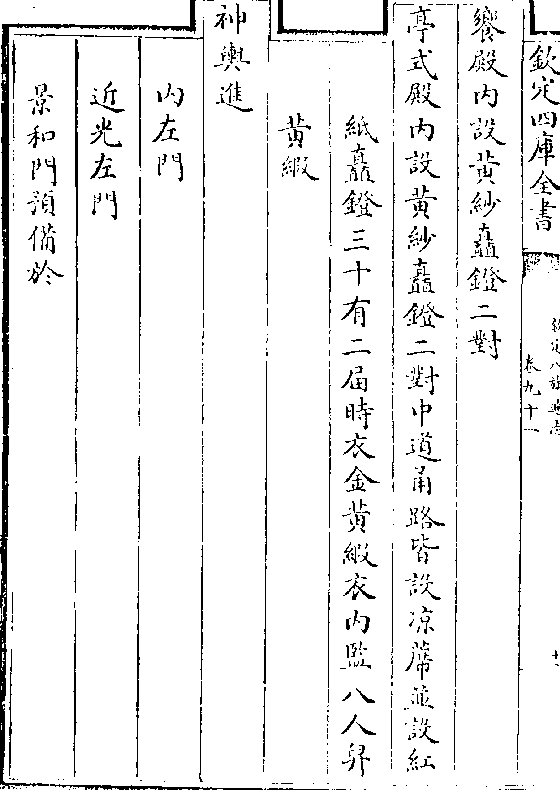 欽定四庫全書
欽定八旗通志
卷九十一
饗殿内設黄紗矗鐙二對
亭式殿内設黄紗矗鐙二對中道甬路皆設凉蓆並設紅
紙矗鐙三十有二届時衣金黄緞衣内監八人舁
黄緞
神輿進
内左門
近光左門
景和門預備於